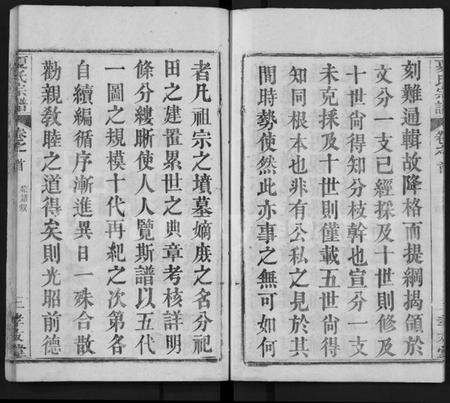 刻難通輯故降格而提綱揭領於
文分一支已經採及十世則修及
十世尙得知分枝幹也宣分一支
未克採及十世則僅載五世尙得
知同根本也非有公私之見於其
間時勢使然此亦事之無可如何
者凡祖宗之墳墓嫡庶之名分祀
田之建置累世之典章考核詳明
條分縷晰使人人覽斯譜以五代
一圖之規模十代再紀之次第各
自續編循序漸進異日一殊合散
勸親敎睦之道得矣則光昭前德
夏氏宗譜
卷之首
三
孝友堂